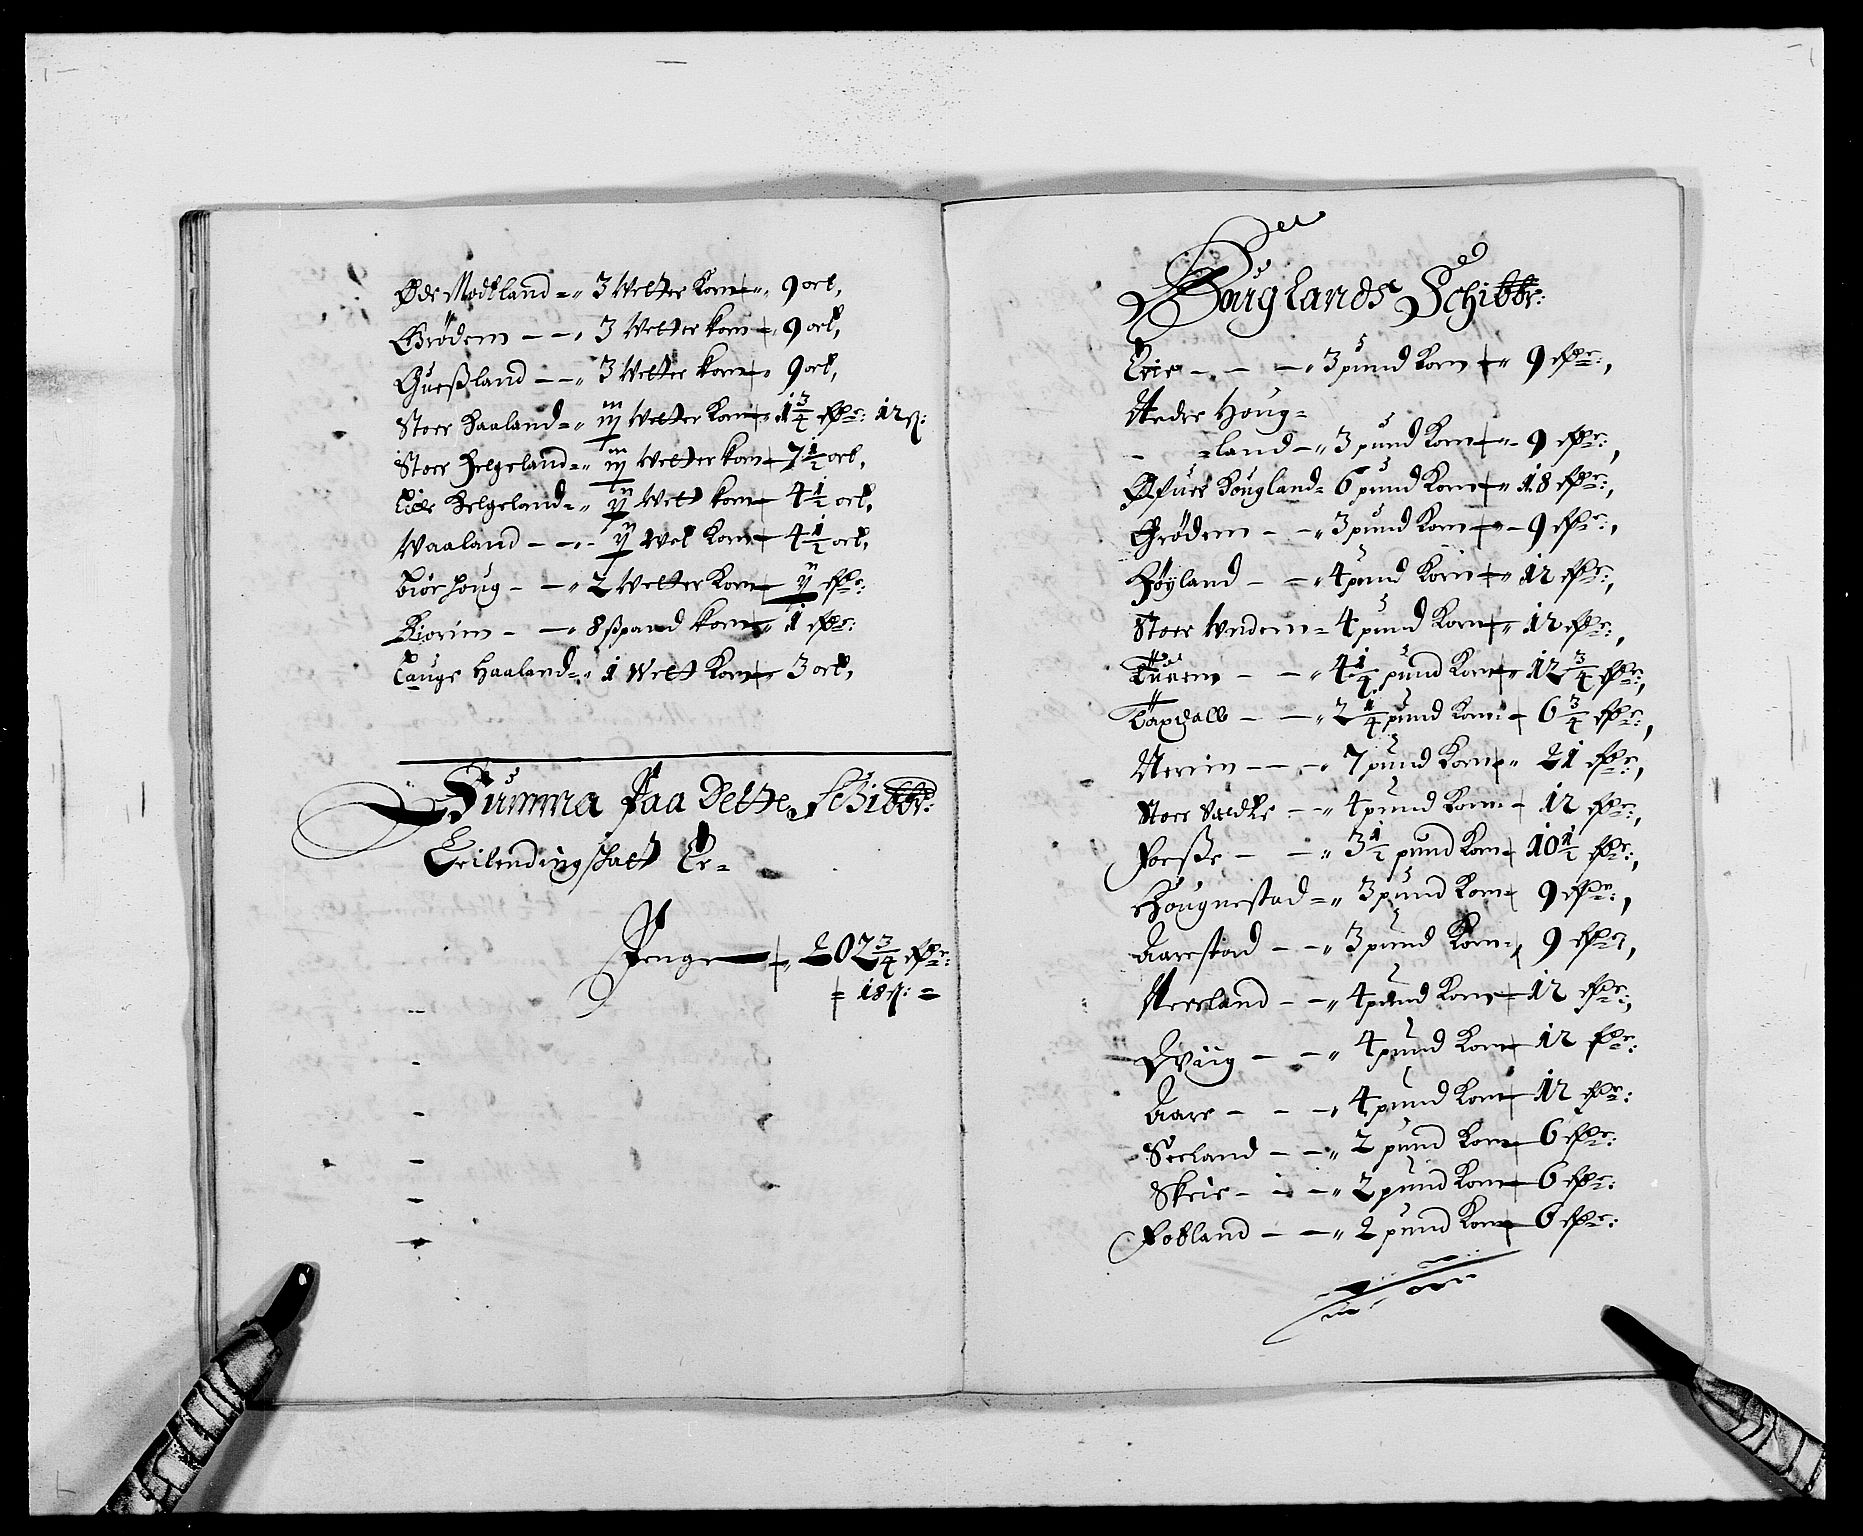 Øde Modland = „ 3 Wetter Korn „ 9 ort,
Grödem – – „ 3 Wetter korn „ 9 ort,
Gueßland – – „ 3 Wetter korn „ 9 ort,
Stoer Haaland = „ iij Wetter Korn „ 1 3/4 rdr: 12 s:
Stoer Helgeland = „ iij Wetter korn 7 1/2 ort,
Lide Helgeland = „ ij Wett korn 4 1/2 ort,
Waaland – – – ij Wet Korn 4 1/2 ort,
– – „ 2 Wetter Korn ij rdr:
– – „ 8 ßpand korn „ 1 rdr:
Lauge Haaland = „ 1 Wett Korn 3 ort,
Summa Paa Dette Schibbr:
Leilendingschatt Er =
Penge – „ 202 3/4 rdr:
= 18 s: =
Houglands Schibbr:
Eie – – – „ 3 pund Korn „ 9 rdr:,
Nedre Houg =
= land – „ 3 pund Korn – 9 rdr:,
Øfure Hougland = 6 pund Korn „ 18 rdr:,
Grödem – – „ 3 pund Korn – 9 rdr:,
Höyland – – „ 4 pund Korn „ 12 rdr:,
Stoer = 4 pund Korn „ 12 rdr:,
– – „ 4 1/4 pund Korn „ 12 3/4 rdr:,
– – „ 2 1/4 pund Korn – 6 3/4 rdr:,
– – – „ 7 pund Korn „ 21 rdr:,
Stoer – „ 4 pund Korn – 12 rdr:,
Foesse – – „ 3 1/2 pund Korn 10 1/2 rdr:,
Hougnestad = „ 3 pund Korn 9 rdr:,
Aarestad – – „ 3 pund Korn 9 rdr,
Neerland – – „ 4 pund Korn 12 rdr:,
– – „ 4 pund Korn 12 rdr:
Aare – – – „ 4 pund Korn 12 rdr:
Seeland – – „ 2 pund Korn 6 rdr:
Skeie – – – „ 2 pund Korn 6 rdr:
Fobland – – „ 2 pund Korn 6 rdr: